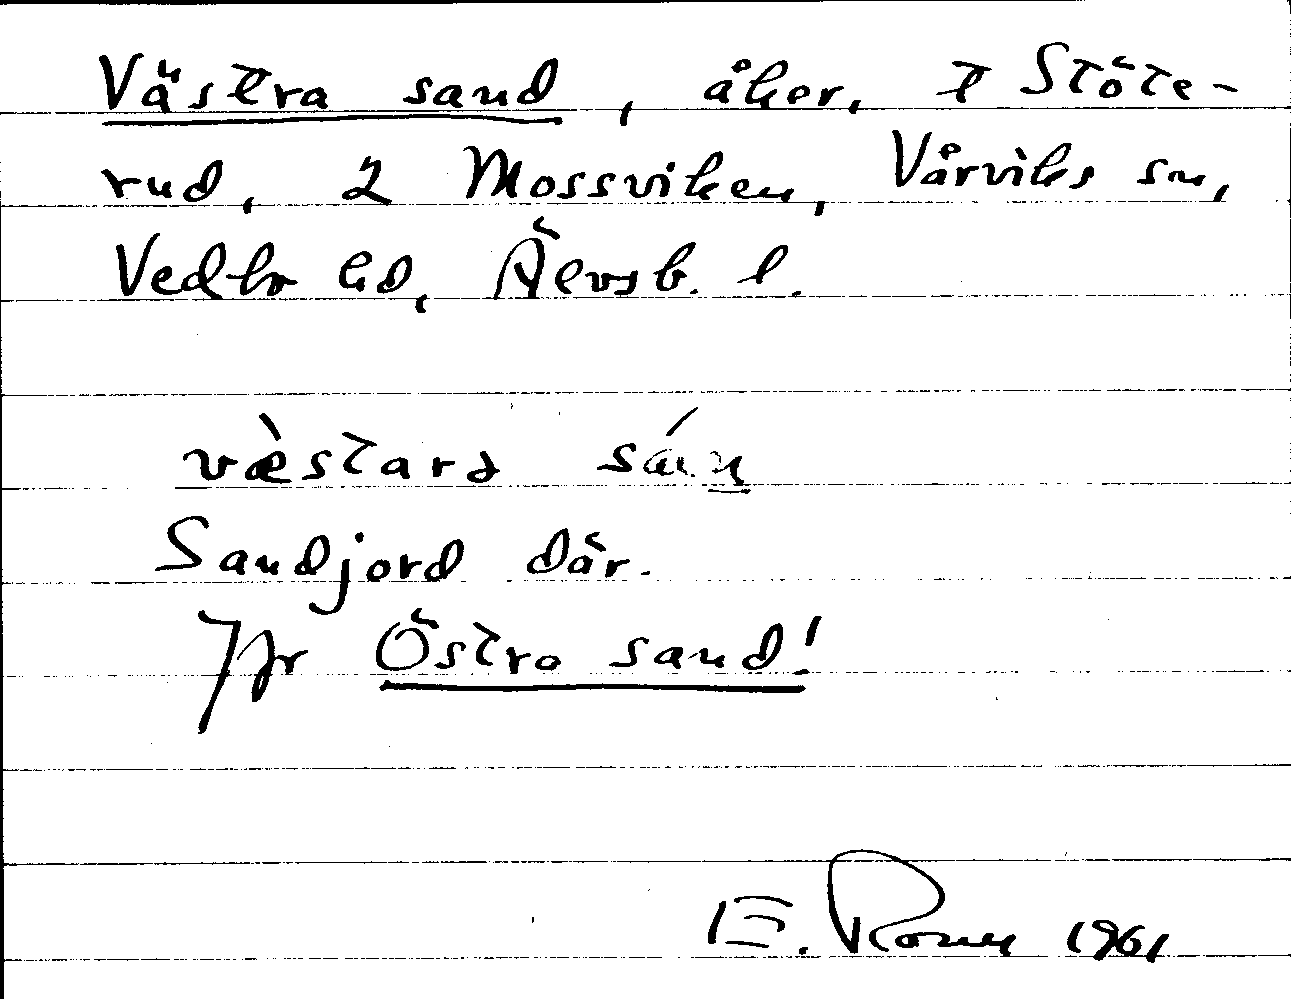 Västra sand, åker, t Stöte-
rud, 2 Mossviken, Vårviks sn,
Vedbo hd, Älvsb. l.
væ̀stara sán
Sandjord där.
Jfr Östra sand!
E. 1961